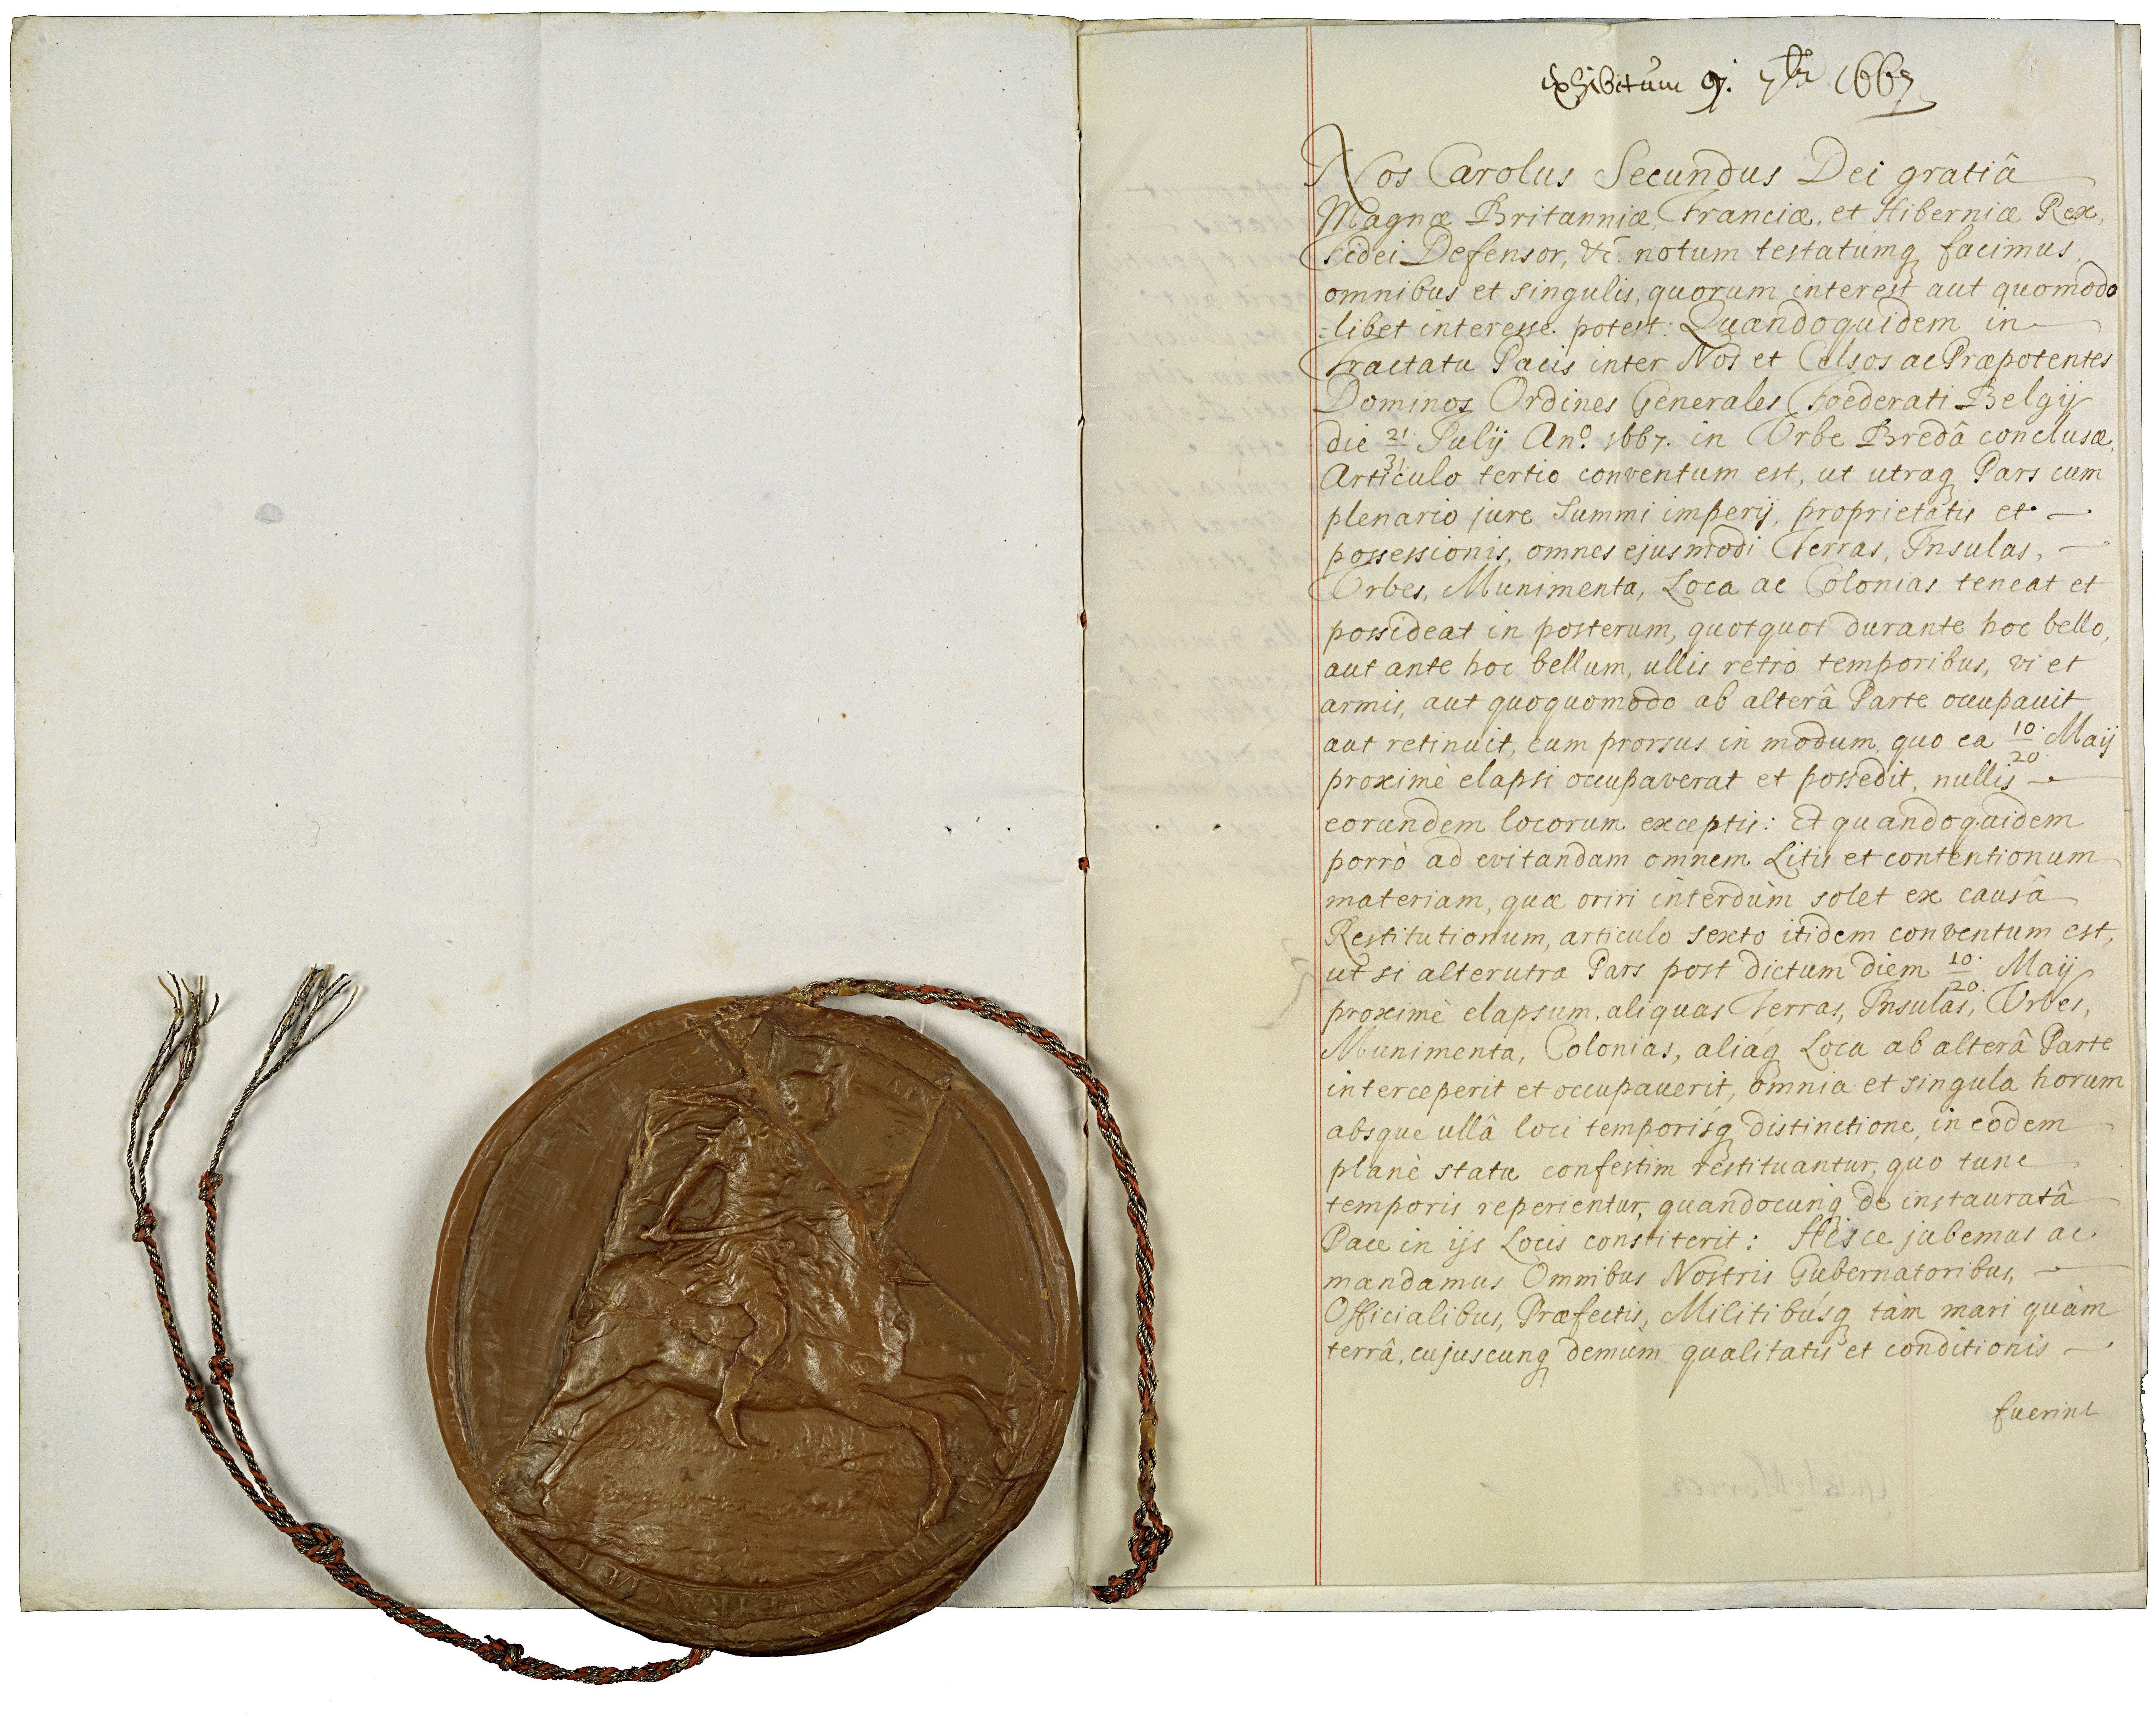 Exhibitum 9. 7bris 1667
Nos Carolus Secundus Dei gratiâ
Magnæ Britanniæ, Franciæ, et Hiberniæ Rex,
Fidei Defensor, &c. notum testatúmq facimus
omnibus et singulis, quorum interest aut quomodo
=libet interesse potest: Quandoquidem in
Tractatu Pacis inter Nos et Celsos ac Præpotentes
Dominos Ordines Generales Fœderati Belgij
die 21/31 Julij Anº. 1667. in Urbe Bredâ conclusæ,
Articulo tertio conventum est, ut utraq Pars cum
plenario jure Summi imperij, proprietatis et
possessionis, omnes ejusmodi Terras, Insulas,
Urbes, Munimenta, Loca ac Colonias teneat et
possideat in posterum, quotquot durante hoc bello,
aut ante hoc bellum, ullis retrò temporibus, vi et
armis, aut quoquomodo ab alterâ Parte occupauit
aut retinuit, eum prorsus in modum, quo ea 10/20 Maij
proximè elapsi occupaverat et possedit, nullis
eorundem locorum exceptis: Et quandoquidem
porrò ad evitandam omnem Litis et contentionum
materiam, quæ oriri interdùm solet ex causâ
Restitutionum, articulo sexto itidem conventum est,
ut si alterutra Pars post dictum diem 10/20 Maij
proximè elapsum, aliquas Terras, Insulas, Urbes,
Munimenta, Colonias, aliáq Loca ab alterâ Parte
interceperit et occupauerit, omnia et singula horum
absque ullâ loci temporisq distinctione, in eodem
planè statu confestim restituantur, quo tunc
temporis reperientur, quandocunq de instauratâ
Pace in ijs Locis constiterit: Hisce jubemus ac
mandamus Omnibus Nostris Gubernatoribus,
Officialibus, Præfectis, Militibúsq tàm mari quàm
terrâ, cujuscunq demùm qualitatis et conditionis
fuerint